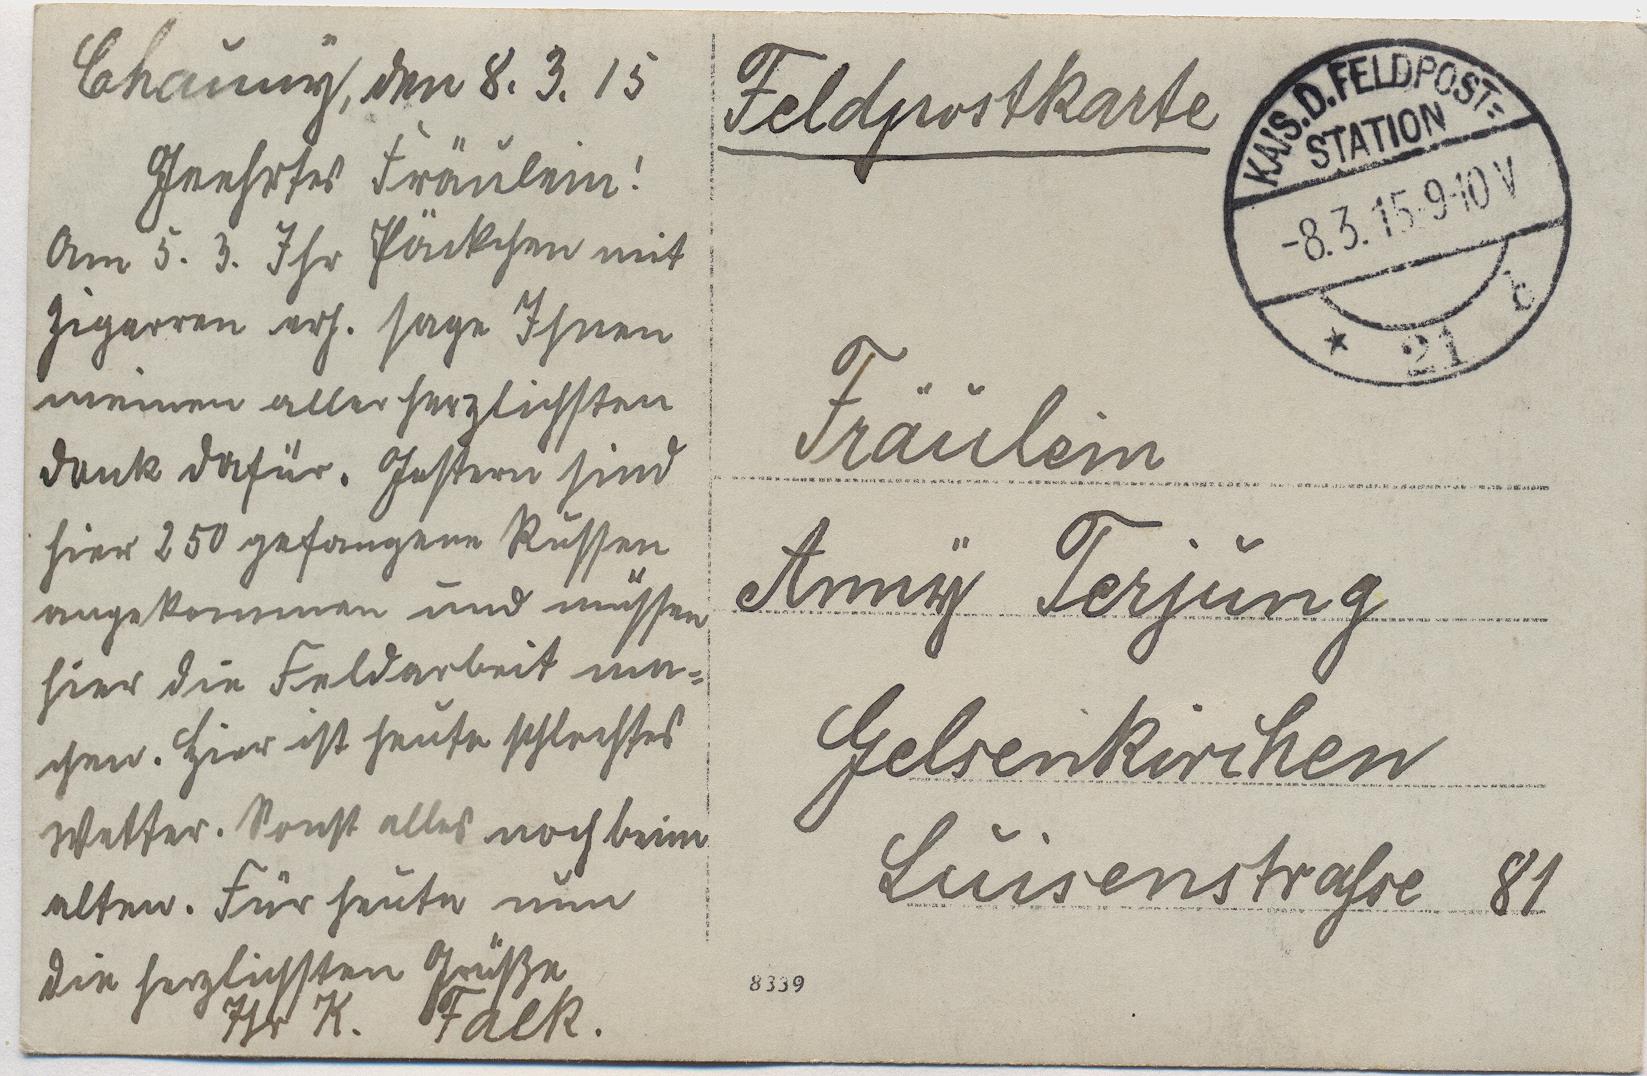 Chauny, den 8. 3. 15
Geehrtes Fräulein!
Am 5. 3. Ihr Päckchen mit
Zigarren erh. sage Ihnen
meinen aller herzlichsten
Dank dafür. Gestern sind
hier 250 gefangene Russen
angekommen und müssen
hier die Feldarbeit ma=
chen. Hier ist heute schlechtes
Wetter. Sonst alles noch beim
alten. Für heute nun
die herzlichsten Grüße
Ihr K. Falk.
Feldpostkarte
KAIS. D. FELDPOST=
STATION
-8.3.15.9-10 V
* 21 b
Fräulein
Anny Terjung
Gelsenkirchen
Luisenstraße 81
8339